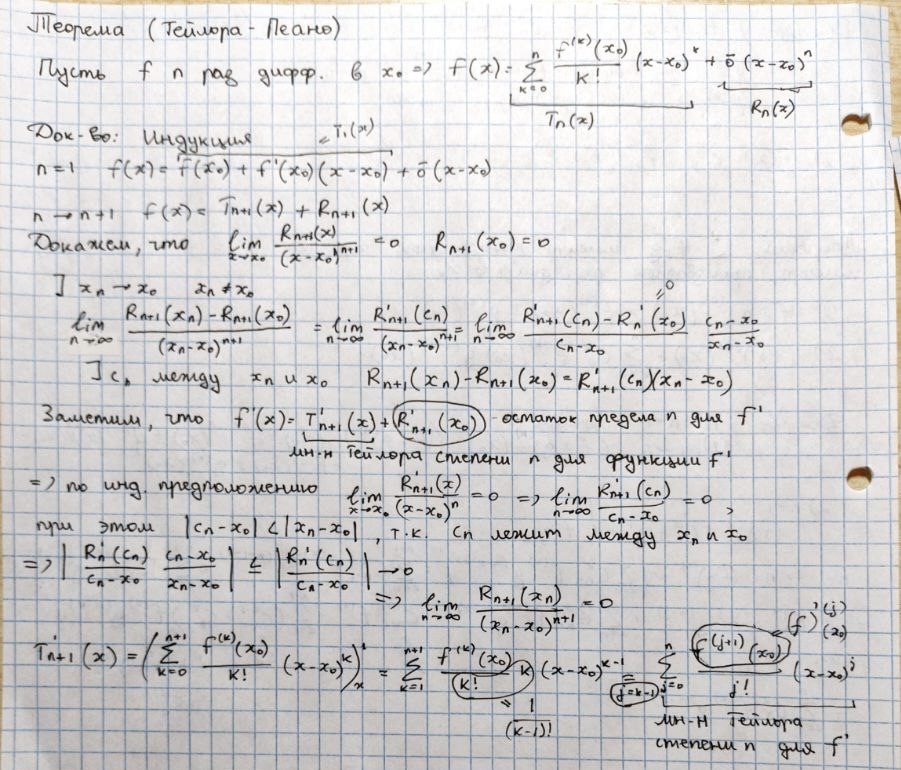 Теорема (Тейлора - Пеано)
Пусть f n раз дифф. в x₀ => f(x) = ∑_{k=0}^{n} f^{(k)}(x₀)/k! (x-x₀)^k + ō(x-x₀)^n
T_n(x) R_n(x)
Док-во: Индукция = T₁(x)
n=1 f(x) = f(x₀) + f'(x₀)(x-x₀) + ō(x-x₀)
n → n+1 f(x) = T_{n+1}(x) + R_{n+1}(x)
Докажем, что lim_{x→x₀} R_{n+1}(x)/(x-x₀)^{n+1} = 0 R_{n+1}(x₀) = 0
] x_n → x₀ x_n ≠ x₀
lim_{n→∞} (R_{n+1}(x_n) - R_{n+1}(x₀))/(x_n-x₀)^{n+1} = lim_{n→∞} R'_{n+1}(c_n)/(x_n-x₀)^{n+1} = lim_{n→∞} (R'_{n+1}(c_n) - R_n'(x₀))/(c_n-x₀) (c_n-x₀)/(x_n-x₀) = 0
] c_n между x_n и x₀ R_{n+1}(x_n) - R_{n+1}(x₀) = R'_{n+1}(c_n)(x_n-x₀)
Заметим, что f'(x) = T'_{n+1}(x) + R'_{n+1}(x₀) - остаток предела n для f'
мн-н Тейлора степени n для функции f'
=> по инд. предположению lim_{x→x₀} R'_{n+1}(x)/(x-x₀)^n = 0 => lim_{n→∞} R'_{n+1}(c_n)/(c_n-x₀) = 0,
при этом |c_n-x₀| < |x_n-x₀|, т.к. c_n лежит между x_n и x₀
=> |R_n'(c_n)/(c_n-x₀) (c_n-x₀)/(x_n-x₀)| ≤ |R_n'(c_n)/(c_n-x₀)| → 0
=> lim_{n→∞} R_{n+1}(x_n)/(x_n-x₀)^{n+1} = 0
T'_{n+1}(x) = (∑_{k=0}^{n+1} f^{(k)}(x₀)/k! (x-x₀)^k)'_x = ∑_{k=1}^{n+1} f^{(k)}(x₀)/k! k (x-x₀)^{k-1} = ∑_{j=0}^{n} f^{(j+1)}(x₀)/j! (x-x₀)^j
= (f')^{(j)}(x₀)
j=k-1
= 1/(k-1)!
мн-н Тейлора
степени n для f'